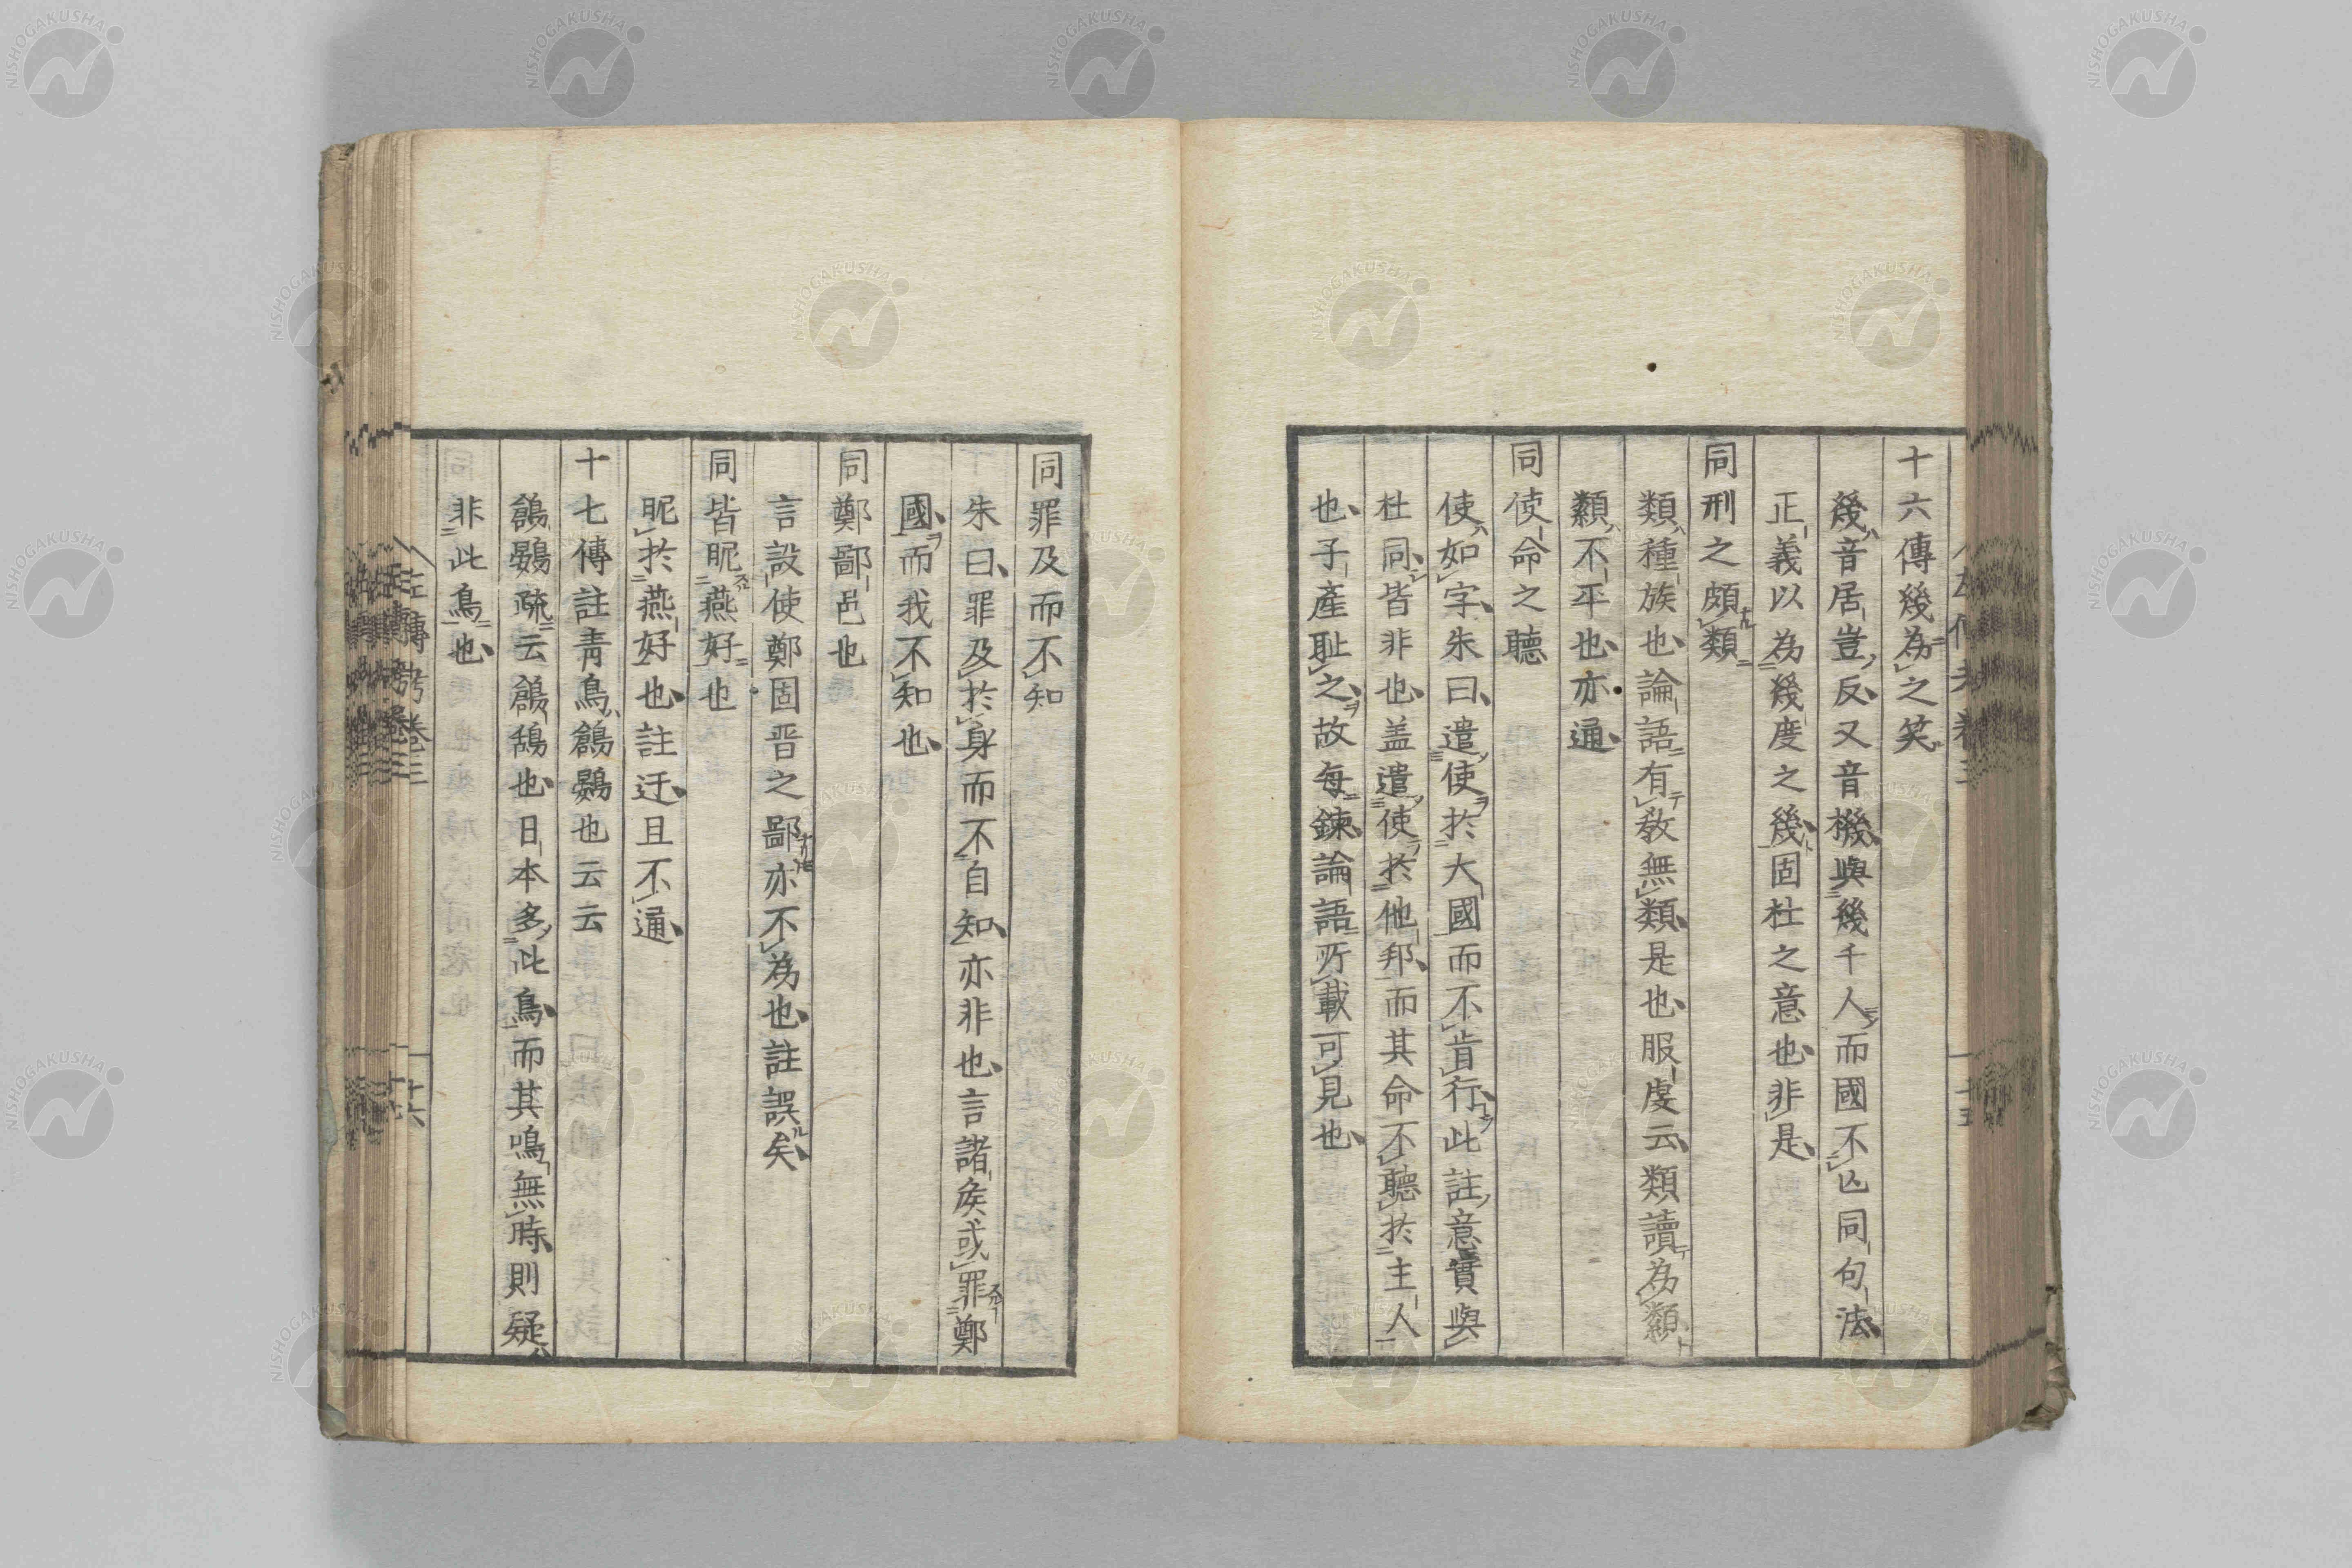 十六傳幾為之笑
幾音居豈反又音機與幾千人而國不亾同句法
正義以為幾度之幾固杜之意也非是
同刑之頗類
類種族也論語有敎無類是也服虔云類讀為纇
纇不平也亦通
同使命之聽
使如字朱曰遣使於大國而不肯行此註意實與
杜同皆非也盖遣使於他邦而其命不聽於主人
也子產耻之故每鍊論語所載可見也
同罪及而不知
朱曰罪及於身而不自知亦非也言諸矦或罪鄭
國而我不知也
同鄭鄙邑也
言設使鄭固晋之鄙亦不為也註誤矣
同皆昵燕好也
昵於燕好也註迂且不通
十七傳註靑鳥鶬鷃也云云
鶬鷃疏云鶬鴰也日本多此鳥而其鳴無時則疑
非此鳥也
左傳考卷三
十六
NISHOGAKUSHA